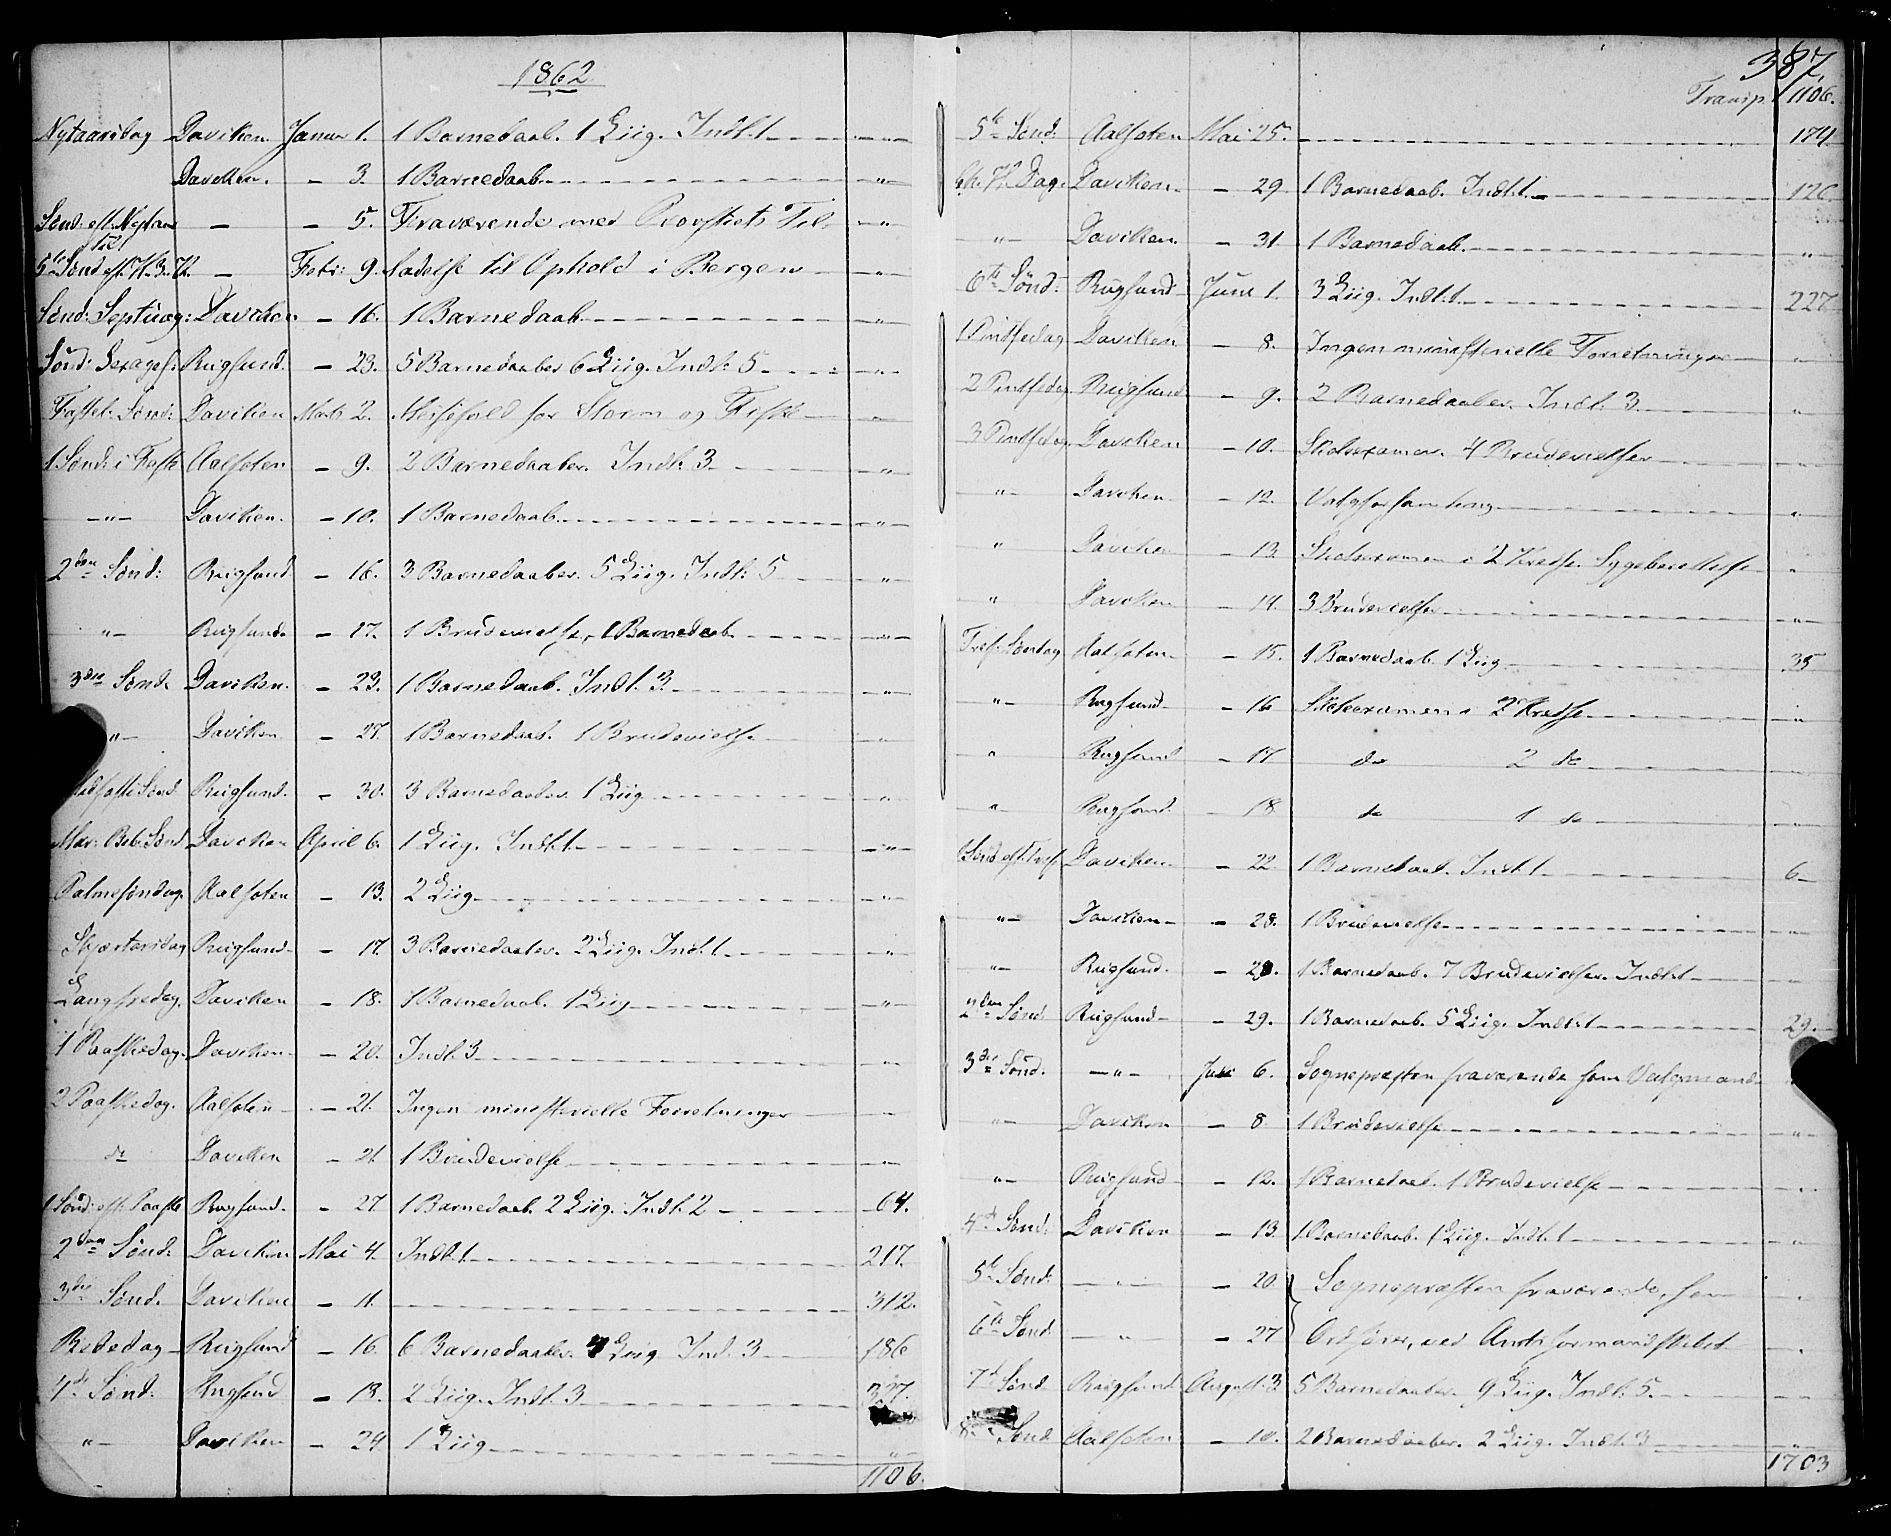 1862
Nytaarsdag Daviken Januar 1. 1 Barnedaab. 1 Liig. Indl: 1 - " -
Daviken. - 3. 1 Barnedaab - " -
Sønd: eft: Nytaar - - 5. Fraværende med Provstiets Til- - " -
5te Sønd eft. H. 3. K. - Febr: 9. ladelse til Ophold i Bergen - " -
Sønd: Septuag: Daviken - 16. 1 Barnedaab - " -
Sønd: Sexages: Rugsund. - 23. 5 Barnedaaber 6 Liig. Indl: 5 - " -
Fastel: Sønd: Daviken Marts 2. Messefald for Storm og Fiske - " -
1 Sønd: i Faste Aalfoten - 9. 2 Barnedaaber. Indl: 3 - " -
- " - Daviken. - 10. 1 Barnedaab - " -
2den Sønd: Rugsund - 16. 3 Barnedaaber. 5 Liig. Indl: 5 - " -
- " - Rugsund. - 17. 1 Brudevielse, 1 Barnedaab - " -
3die Sønd. Daviken. - 23. 1 Barnedaab. Indl. 3. - " -
- " - Daviken - 27 1 Barnedaab. 1 Brudevielse - " -
Midfaste Sønd Rugsund. - 30. 3 Barnedaaber. 1 Liig - " -
Mar: Beb: Sønd. Daviken April 6. 1 Liig. Indl: 1 - " -
Palmesøndag. Aalfoten - 13. 2 Liig - " -
Skjærtorsdag Rugsund - 17. 3 Barnedaaber. 2 Liig. Indl: 1 - " -
Langfredag. Daviken - 18. 1 Barnedaab. 1 Liig - " -
1 Paaskedag. Daviken - 20. Indl. 3 - " -
2 Paaskedag. Aalfoten - 21. Ingen ministerielle Forretninger - " -
do Daviken - 21 1 Brudevielse - " -
1 Sønd: eft: Paaske Rugsund. - 27 1 Barnedaab. 2 Liig. Indl: 2 64.
2den Sønd: Daviken Mai 4. Indl: 1 217.
3die Sønd. Daviken - 11. 312.
Bededag Rugsund - 16. 6 Barnedaaber. 4 Liig Indl. 3 186
4de Sønd: Rugsund - 18. 2 Liig. Indl. 3 327.
- " - Daviken - 24 1 Liig - " -
1106.
387.
Transp. 1106.
5te Sønd: Aalfoten Mai 25. 174
Chr. H. Dag. Daviken - 29. 1 Barnedaab. Indl: 1 120
- " - Daviken. - 31 1 Barnedaab. - " -
6te Sønd: Rugsund Juni 1. 3 Liig. Indl: 1 227
1 Pintsedag Daviken - 8. Ingen ministerielle Forretninger - " -
2 Pintsedag Rugsund - 9. 2 Barnedaaber. Indl: 3 - " -
3 Pintsedag Daviken - 10. Skoleexamen. 4 Brudevielser - " -
- " - Daviken - 12. Valgforsamling - " -
- " - Daviken - 13. Skoleexamen i 2 Kredse. Sygeberettelse - " -
- " - Daviken - 14. 3 Brudevielser - " -
Tref. Søndag Aalfoten - 15. 1 Barnedaab. 1 Liig 35
- " - Rugsund - 16 Skoleexamen i 2 Kredse - " -
- " - Rugsund - 17 do 2 do - " -
- " - Rugsund. - 18 do 1 do - " -
Sønd. eft. Tref. Daviken - 22. 1 Barnedaab. Indl: 1 6
- " - Daviken - 28. 1 Brudevielse - " -
- " - Rugsund. - 28. 1 Barnedaab. 7 Brudevielser. Indl: 1 - " -
2den Sønd. Rugsund - 29. 1 Barnedaab. 5 Liig. Indl: 1 29.
3die Sønd. - " - Juli 6. Sognepræsten fraværende som Valgmand - " -
- " - Daviken - 8 1 Brudevielse - " -
- " - Rugsund - 12. 1 Barnedaab. 1 Brudevielse - " -
4de Sønd: Daviken - 13. 1 Barnedaab. 1 Liig. Indl: 1 - " -
5te Sønd: - " - - 20 Sognepræsten fraværende, som - " -
6te Sønd - " - - 27 Ordfører, ved Amtsformandskabet - " -
7de Sønd Rugsund August 3. 5 Barnedaaber. 9 Liig. Indl: 5. - " -
8de Sønd Aalfoten - 10. 2 Barnedaaber. 2 Liig. Indl: 3 - " -
1703